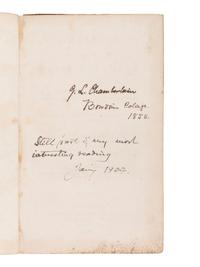 J. L. Chamberlain
Bowdoin College
1850.
Still part of my most
interesting reading